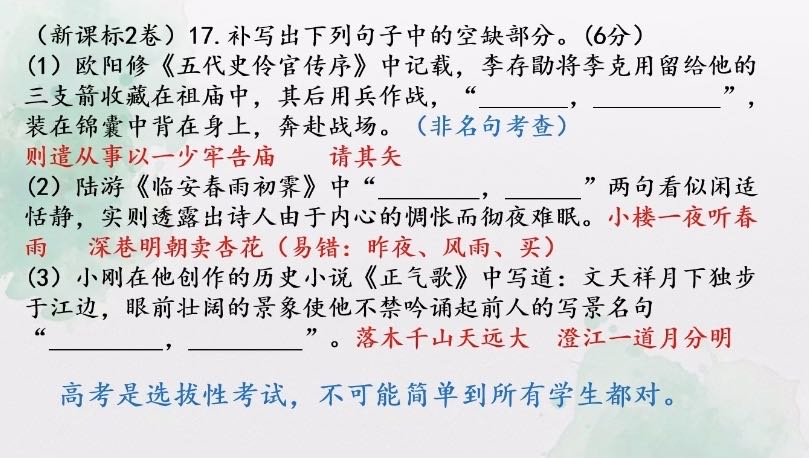 （新课标2卷）17.补写出下列句子中的空缺部分。(6分）
(1）欧阳修《五代史伶官传序》中记载，李存勖将李克用留给他的
三支箭收藏在祖庙中，其后用兵作战，“_______，__________”，
装在锦囊中背在身上，奔赴战场。（非名句考查）
则遣从事以一少牢告庙 请其矢
(2）陆游《临安春雨初霁》中“________，______”两句看似闲适
恬静，实则透露出诗人由于内心的惆怅而彻夜难眠。小楼一夜听春
雨 深巷明朝卖杏花（易错：昨夜、风雨、买）
(3）小刚在他创作的历史小说《正气歌》中写道：文天祥月下独步
于江边，眼前壮阔的景象使他不禁吟诵起前人的写景名句
“_________，_________”。落木千山天远大 澄江一道月分明
高考是选拔性考试，不可能简单到所有学生都对。